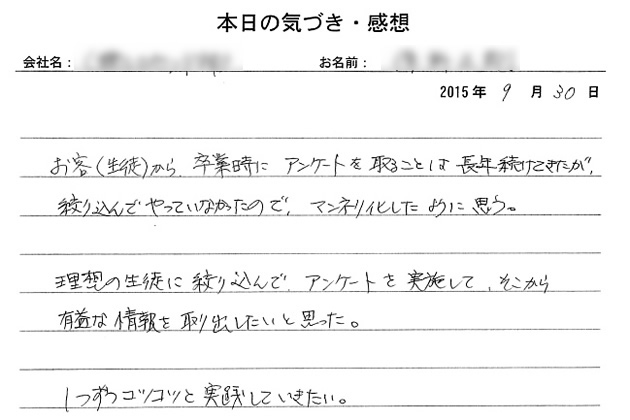 本日の気づき・感想
会社名： お名前：
2015年 9 月 30 日
お客(生徒)から、卒業時に アンケートを取ることは 長年続けてきたが、
絞り込んで やっていなかったので、マンネリ化したように 思う。
理想の生徒に 絞り込んで、アンケートを 実施して、そこから
有益な 情報を 取り出したいと思った。
1つずつコツコツと 実践していきたい。